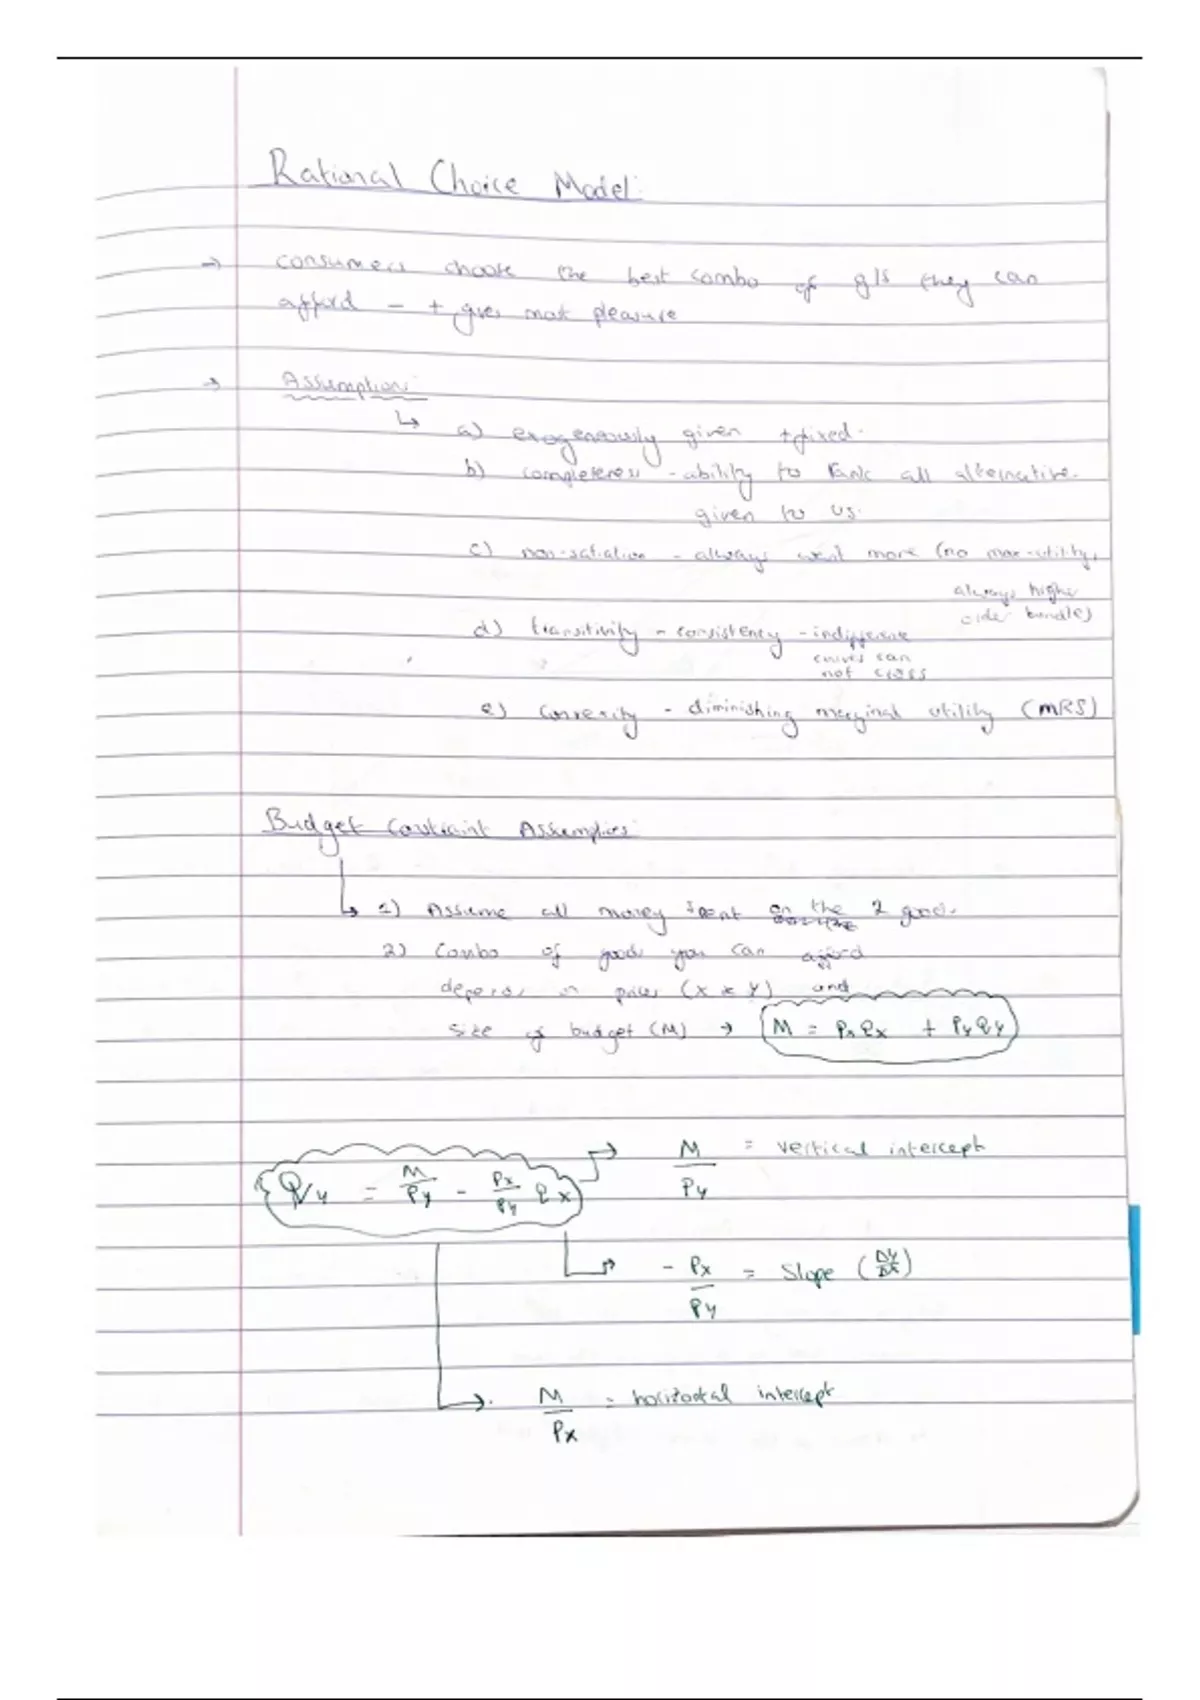 Rational Choice Model:
→ consumers choose the best combo of g/s they can
afford - + gives most pleasure
→ Assumption:
↳ a) exogenously given + fixed.
b) completeness - ability to rank all alternative.
given to us.
c) non-satiation - always want more (no max-utility,
always higher
order bundles)
d) transitivity - consistency - indifference
curves can
not cross
e) convexity - diminishing marginal utility (MRS)
Budget Constraint Assumptions:
↳ 1) Assume all money spent on the 2 goods.
2) Combo of goods you can afford
depends on prices (X & Y) and
size of budget (M) → M = PxQx + PyQy
Qy = M/Py - Px/Py Qx → M/Py = vertical intercept
→ - Px/Py = slope (ΔY/ΔX)
→ M/Px = horizontal intercept